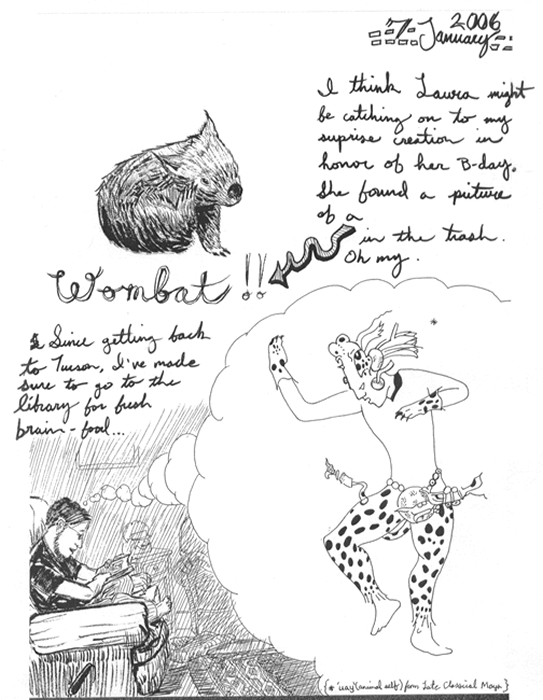 7 January 2006
I think Laura might
be catching on to my
suprise creation in
honor of her B-day.
She found a picture
of a
in the trash.
Oh my.
Wombat !!
Since getting back
to Tucson, I've made
sure to go to the
library for fresh
brain-food...
{* uay (animal self) from Late Classical Maya.}